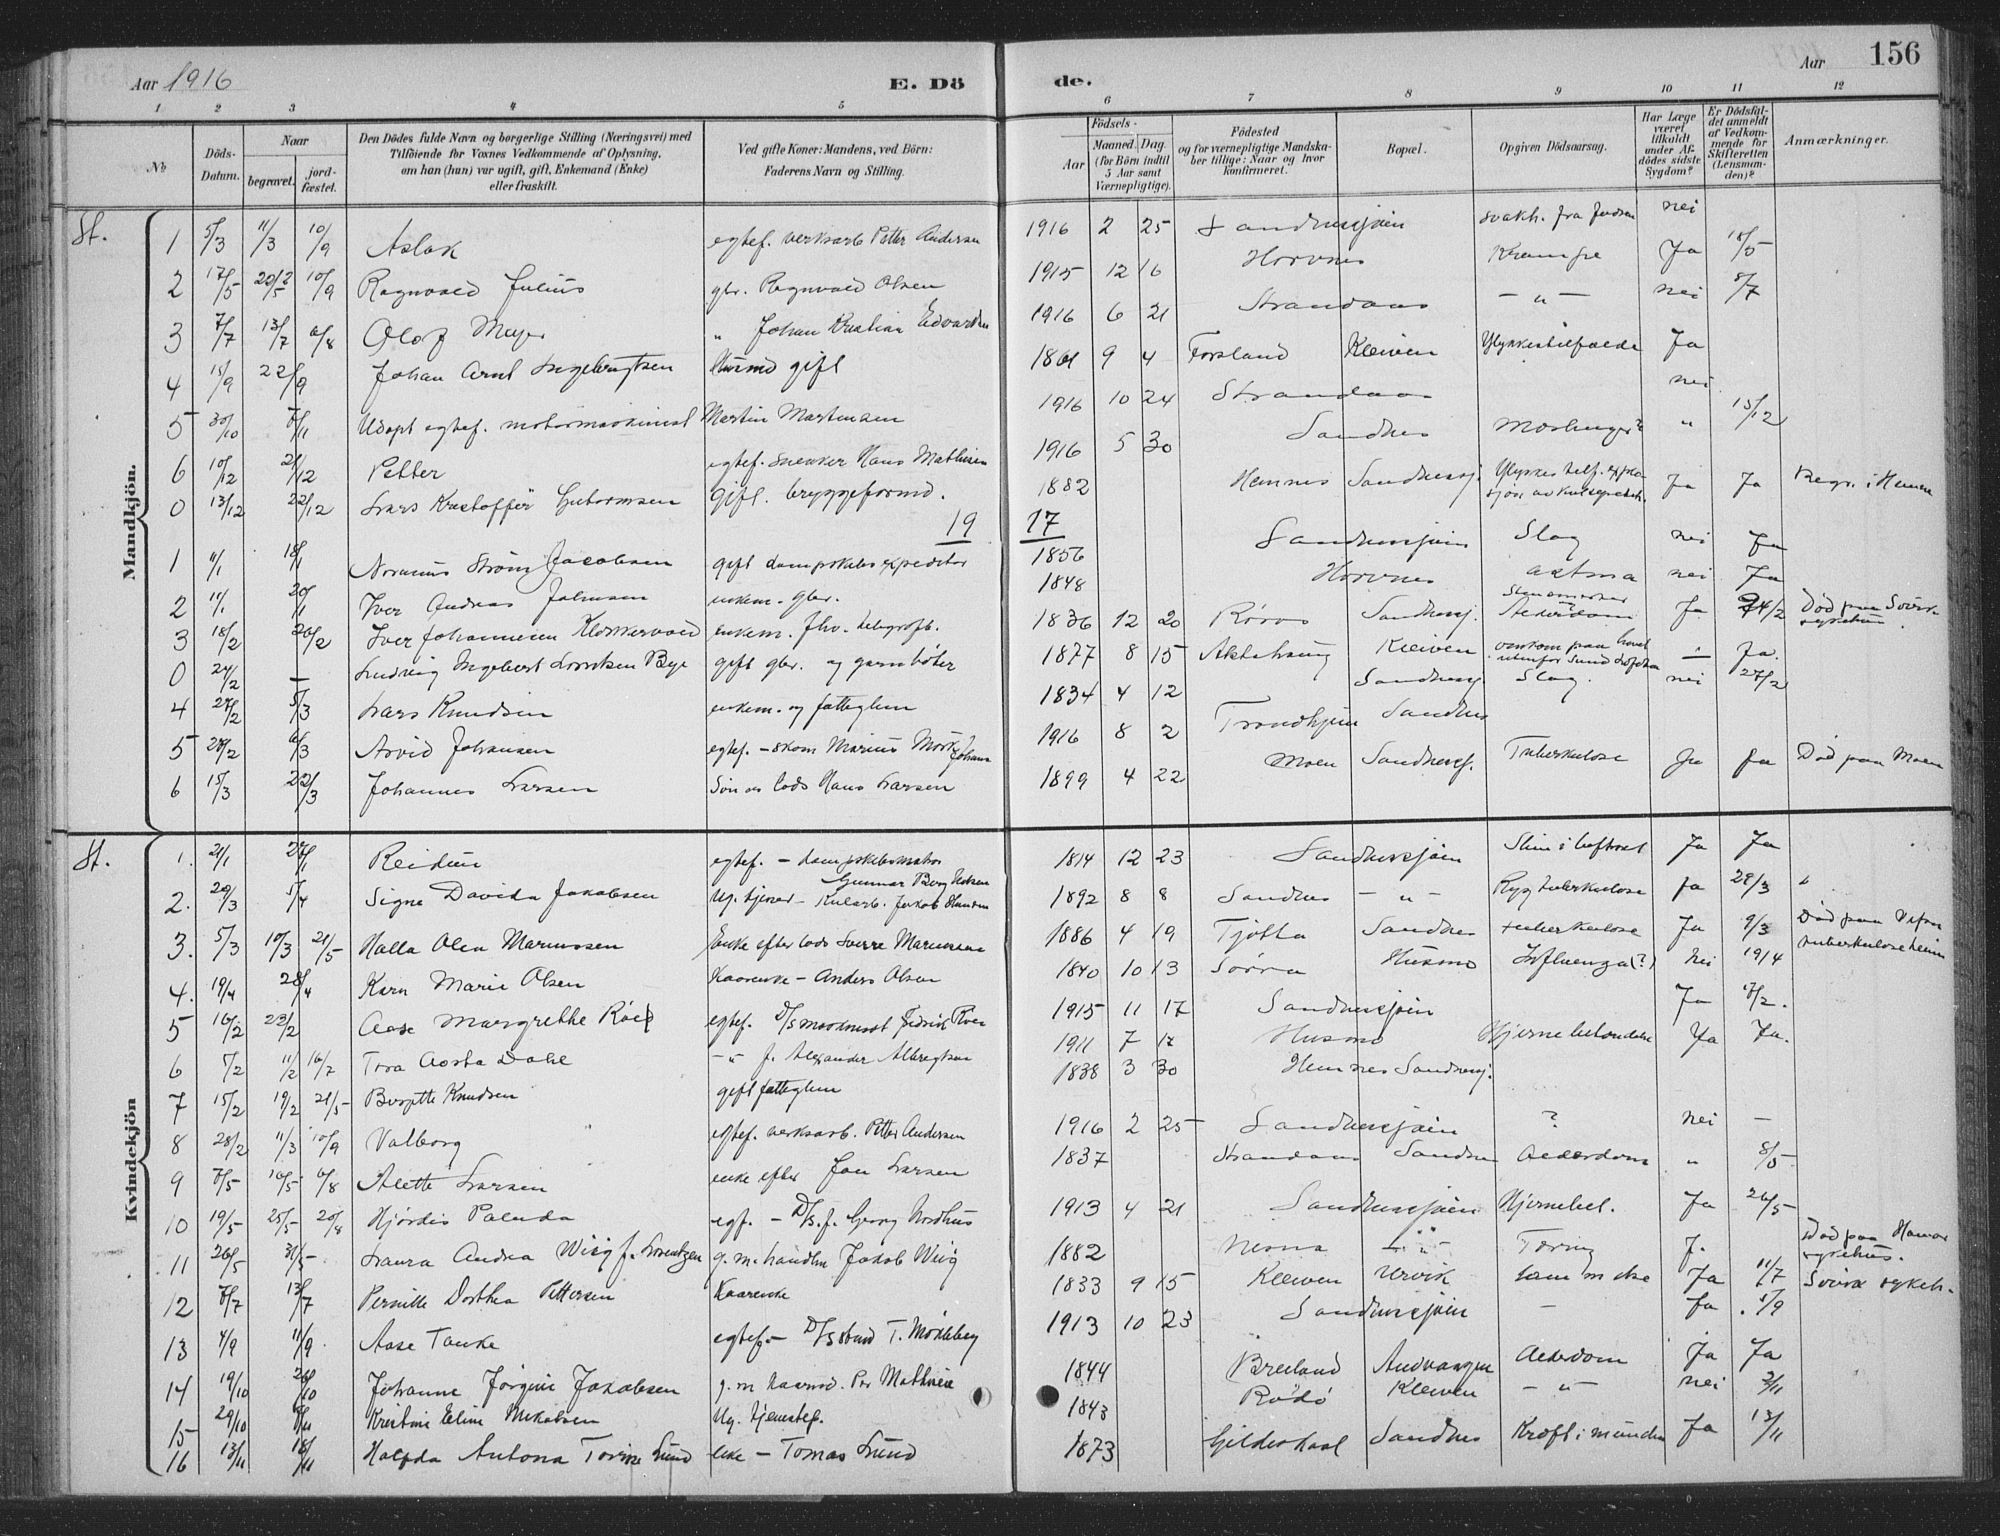 Aar 1916 E. Döde. Aar 156
1 2 3 4 5 6 7 8 9 10 11 12
№
Döds-Datum.
Naar
begravet.
jord-fæstet.
Den Dödes fulde Navn og borgerlige Stilling (Næringsvei) med
Tilföiende for Voxnes Vedkommende af Oplysning,
om han (hun) var ugift, gift, Enkemand (Enke)
eller fraskilt.
Ved gifte Koner: Mandens, ved Börn:
Faderens Navn og Stilling.
Födsels-
Aar
Maaned. Dag.
(for Börn indtil
5 Aar samt
Værnepligtige).
Födested
og for værnepligtige Mandska-
ber tillige: Naar og hvor
konfirmeret.
Bopæl.
Opgiven Dödsaarsag.
Har Læge
været
tilkaldt
under Af-
dödes sidste
Sygdom?
Er Dödsfal-
det anmeldt
af Vedkom-
mende for
Skifteretten
(Lensman-
den)?
Anmærkninger.
St.
Mandkjön.
1 5/3 11/3 10/9 Aslak egtef. verksarb Petter Andersen 1916 2 25 Sandnessjøen svakh. fra fødsen nei
2 17/5 10/9 Ragnvald Julius gbr. Ragnvald Olsen 1915 12 16 Horvnes Krampe Ja 18/5
3 7/7 13/7 6/8 Olaf Meyer " Johan Kristian Edvardsen 1916 6 21 Strandaas — " — nei 8/7
4 15/9 22/9 Johan Arnt Ingebrigtsen Husmd gift 1861 9 4 Forsland Kleiven Ulykkestilfælde Ja
5 30/10 7/11 Udøpt egtef. motormaskinist Martin Martensen 1916 10 24 Strandaas nei
6 10/12 21/12 Petter egtef. snekker Hans Mathisen 1916 5 30 Sandnes " 15/12
0 13/12 22/12 Lars Kristoffer Gutormsen gift. bryggeformd. 1882 Hemnes Sandnessj. Ja Ja Begr. i Hemnes
19 17
1 11/1 18/1 Strøm Jacobsen gift dampskibsexpeditør 1856 Sandnessjøen Slag nei Ja
2 11/1 20/1 Iver Andreas Johnsen enkem. gbr. 1848 Horvnes astma nei Ja
3 18/2 26/2 Iver Johannesen enkem. fhv. telegrafb. 1836 12 20 Røros Sandnessj. Alderdom Ja 24/2 Død paa
0 24/2 — Ludvig Ingebert Bye gift gbr. og garnbøter 1877 8 15 Kleiven omkom paa havet utenfor Sund Lofoten — Ja.
4 27/2 5/3 Lars Knudsen enkem. og fattiglem 1834 4 12 Sandnessj. Slag. nei 27/2
5 28/2 6/3 Arvid Johansen egtef. — skom Marius Mork Johans 1916 8 2 Trondhjem Sandnes
6 15/3 22/3 Johannes Larsen Søn av lods Hans Larsen 1899 4 22 Moen Sandnessj. Tuberkulose Ja Ja Død paa Moen
St.
Kvindekjön
1. 21/1 27/1 Reidun egtef. — dampskibsmatros Gunnar Berg 1814 12 23 Sandnessjøen Slim i luftrør Ja Ja
2. 29/3 5/4 Signe Davida Jakobsen Ug. tjener — Kularb. Jakob Hansen 1892 8 8 Sandnes — " — Rygtuberkulose Ja 29/3
3. 5/3 10/3 21/5 Halla Olea Mariussen Enke efter lods Sverre Mariussen 1886 4 19 Tjøtta Sandnes tuberkulose Ja 9/3 Død paa tuberkuloseheim
4. 19/4 28/4 Karn Marie Olsen Kaarenke — Anders Olsen 1840 10 13 Sørra Husmo Influenza (?) nei 19/4
5 16/2 23/2 Aase Margrethe egtef. 1915 11 17 Sandnessjøen Ja 17/2.
6 5/2 11/2 16/7 Tora Aasta Dahl — " — f. Alexander Albregtsen 1911 7 17 Husmo Hjernebetændelse Ja Ja.
7 15/2 19/2 21/5 Birgitte Knudsen gift fattiglem 1838 3 30 Hemnes Sandnessj.
8 28/2 11/3 10/9 Valborg egtef. verksarb. Petter Andersen 1916 2 25 Sandnessjøen ? nei —
9 7/5 16/5 6/8 Alette Larsen enke efter Jon Larsen 1837 Strandaas Sandnes Alderdom " 8/5
10 19/5 25/5 20/8 Hjørdis Palnda egf. — D/S.f. Georg Nordhus 1913 4 21 Sandnessjøen Hjernebet. Ja 26/5
11 26/5 31/5 Laura Andrea Wiig f. Lorentzen g. m. handlm Jakob Wiig 1882 Nesna — " — Tæring J. Død paa Hamar sykehus.
12 7/7 13/7 Pernille Dorthea Pettersen Kaarenke 1833 9 15 Kleiven Urvik samme Ja 11/7 sykeh.
13 4/9 11/9 Aase Tanke egtef. — D/S T. Mokleberg 1913 10 23 Sandnessjøen — Ja 5/9
14 19/10 26/10 Johanne Jørgine Jakobsen g. m kaarmd. Per Mathisen 1844 Breiland Alderdom Ja Ja
15 29/10 Kristine Eline Mikalsen Ug. tjenestep. 1843 Rødø Kleiven — " — nei 2/11
16 13/11 18/11 Halfda Antona Lund enke — Tomas Lund 1873 Gildeskaal Sandnes Kræft i munden Ja 13/11